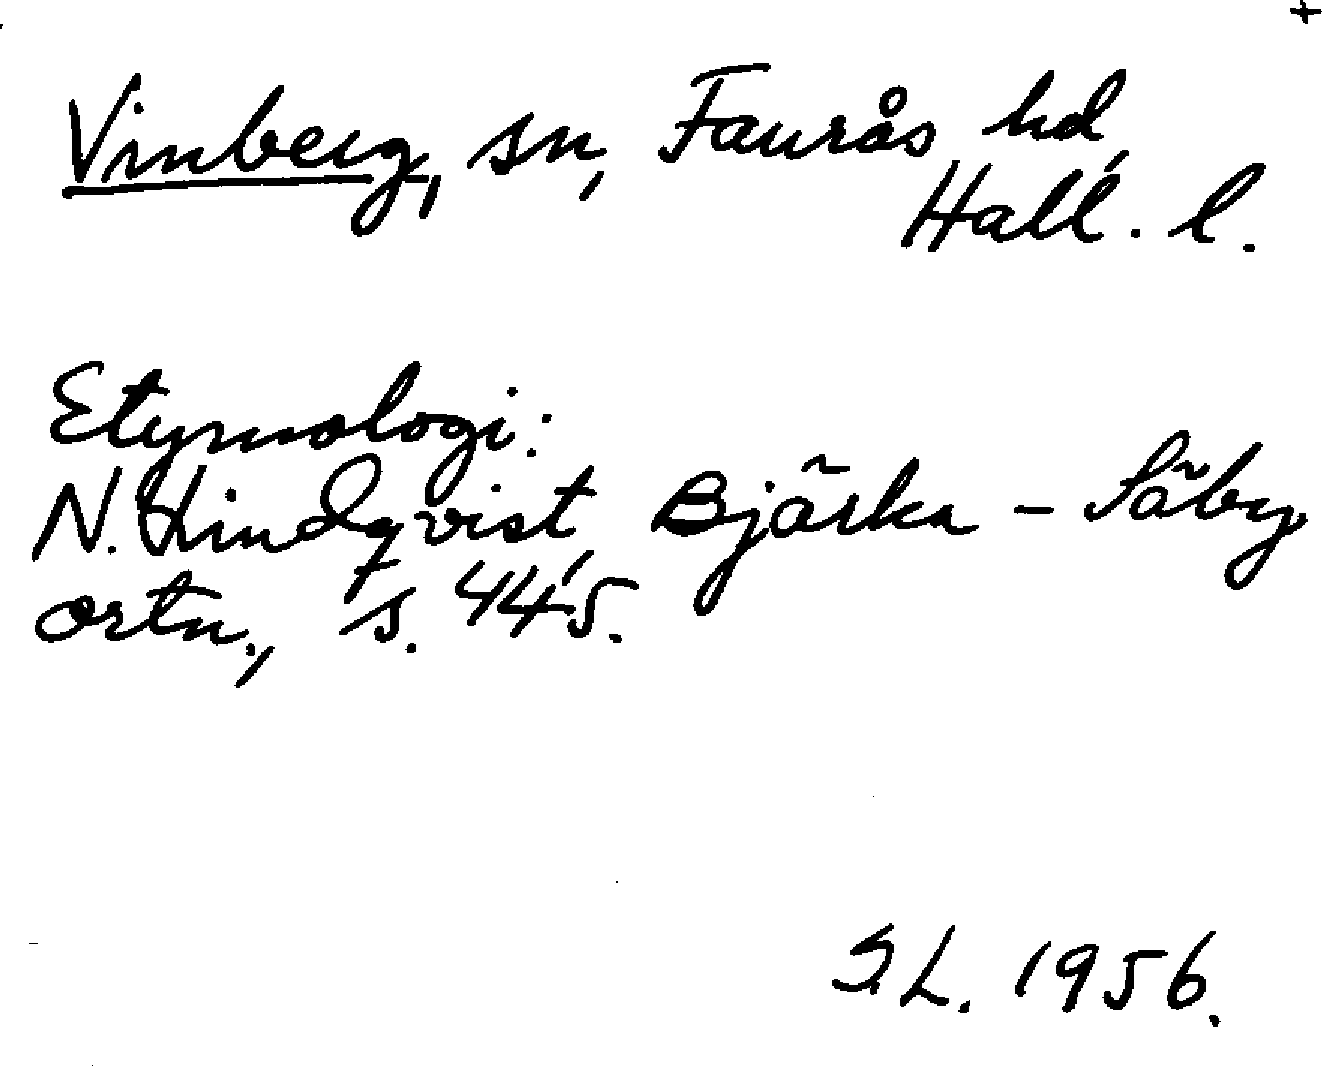 +
Vinberg, sn, Faurås hd,
Hall. l.
Etymologi:
N. Lindqvist, Bjärka - Säby
ortn., s. 445.
S.L. 1956.